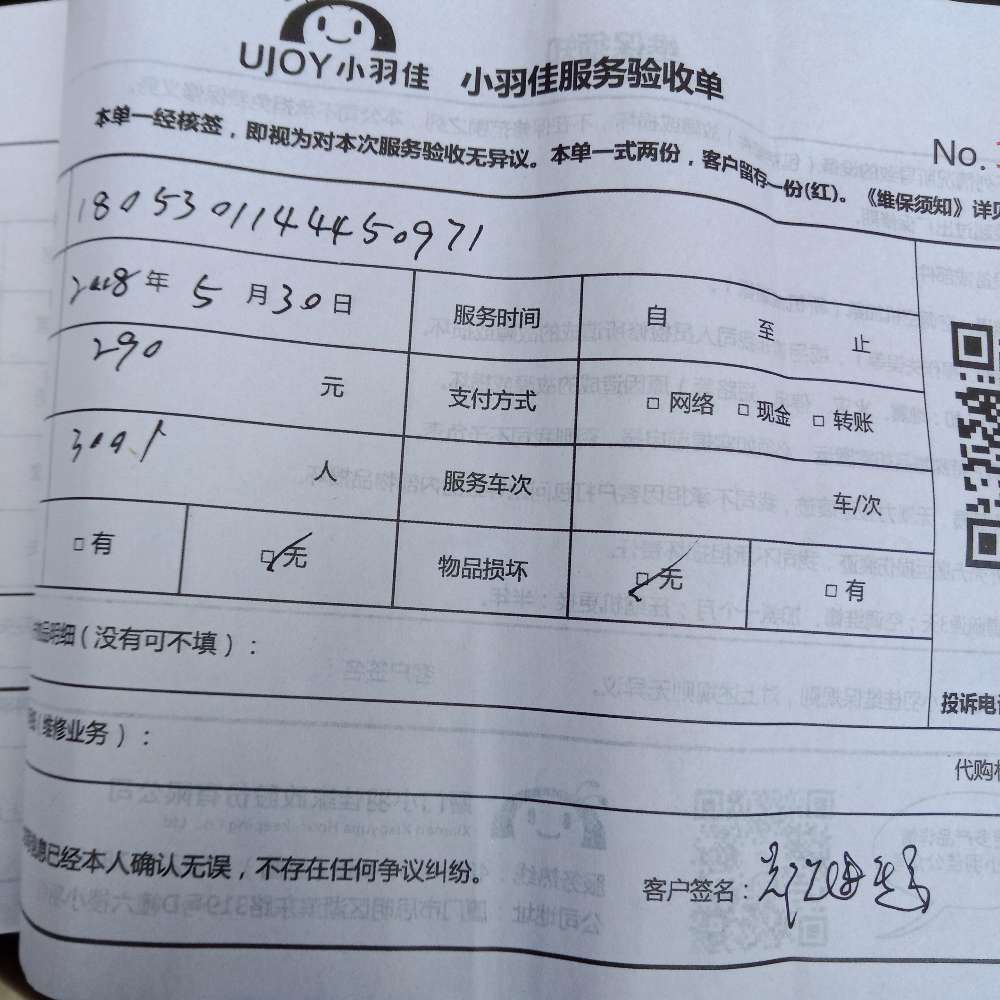 UJOY小羽佳 小羽佳服务验收单
本单一经核签，即视为对本次服务验收无异议。本单一式两份，客户留存一份(红)。《维保须知》详见
No.
1805301144450971
2018年 5 月 30 日 服务时间 自 至 止
290 元 支付方式 □ 网络 □ 现金 □ 转账
人 服务车次 车/次
□ 有 □ 无 物品损坏 □ 无 □ 有
明细(没有可不填)：
(维修业务)：
投诉电话
代购
信息已经本人确认无误，不存在任何争议纠纷。
客户签名: